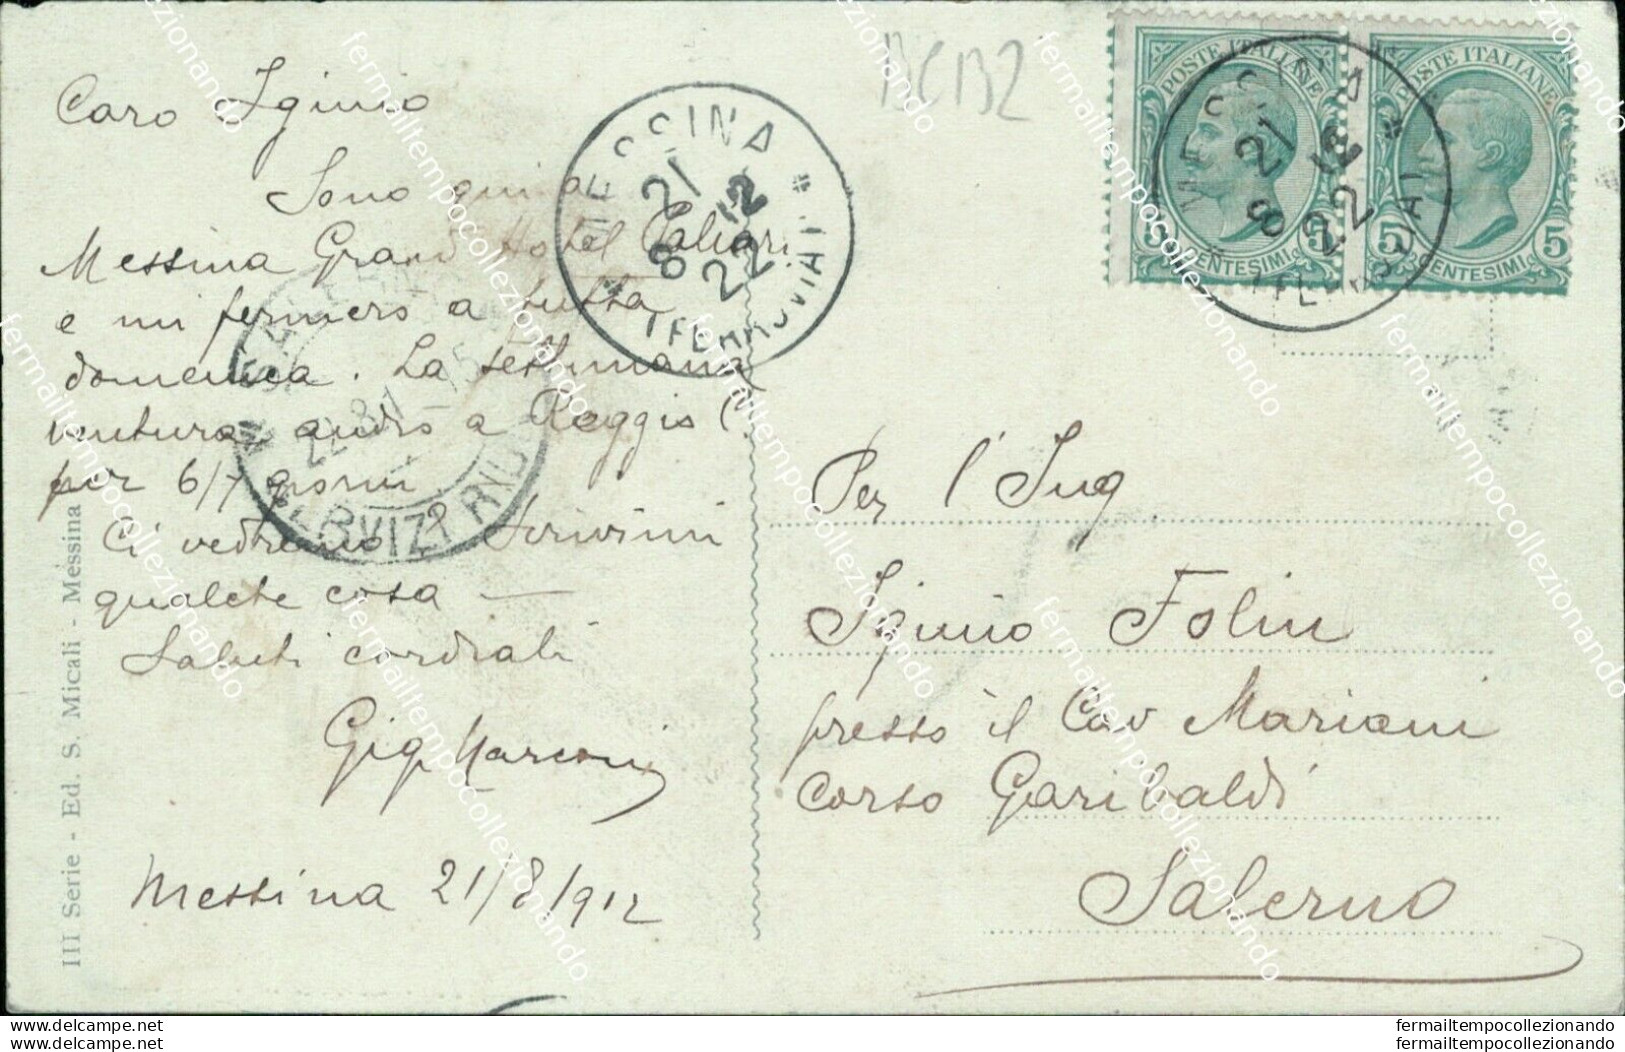 Caro Iginio
Sono qui a
Messina Grand Hotel
e mi fermerò a tutta
domenica. La settimana
ventura andrò a Reggio C.
per 6/7 giorni
Ci vedremo? Scrivimi
qualche cosa —
Saluti cordiali
Gig. Marconi
Messina 21/8/912
III Serie - Ed. S. Micali - Messina
MESSINA
21 12
8 22
(FERROVIA)
BCB2
POSTE ITALIANE
5 CENTESIMI 5
POSTE ITALIANE
5 CENTESIMI 5
MESSINA
21 12
8 22
(FERROVIA)
Per l'Ing
Iginio Folin
presso il Cav Mariani
Corso Garibaldi
Salerno
www.delcampe.net
www.delcampe.net
fermailtempocollezionando
fermailtempocollezionando